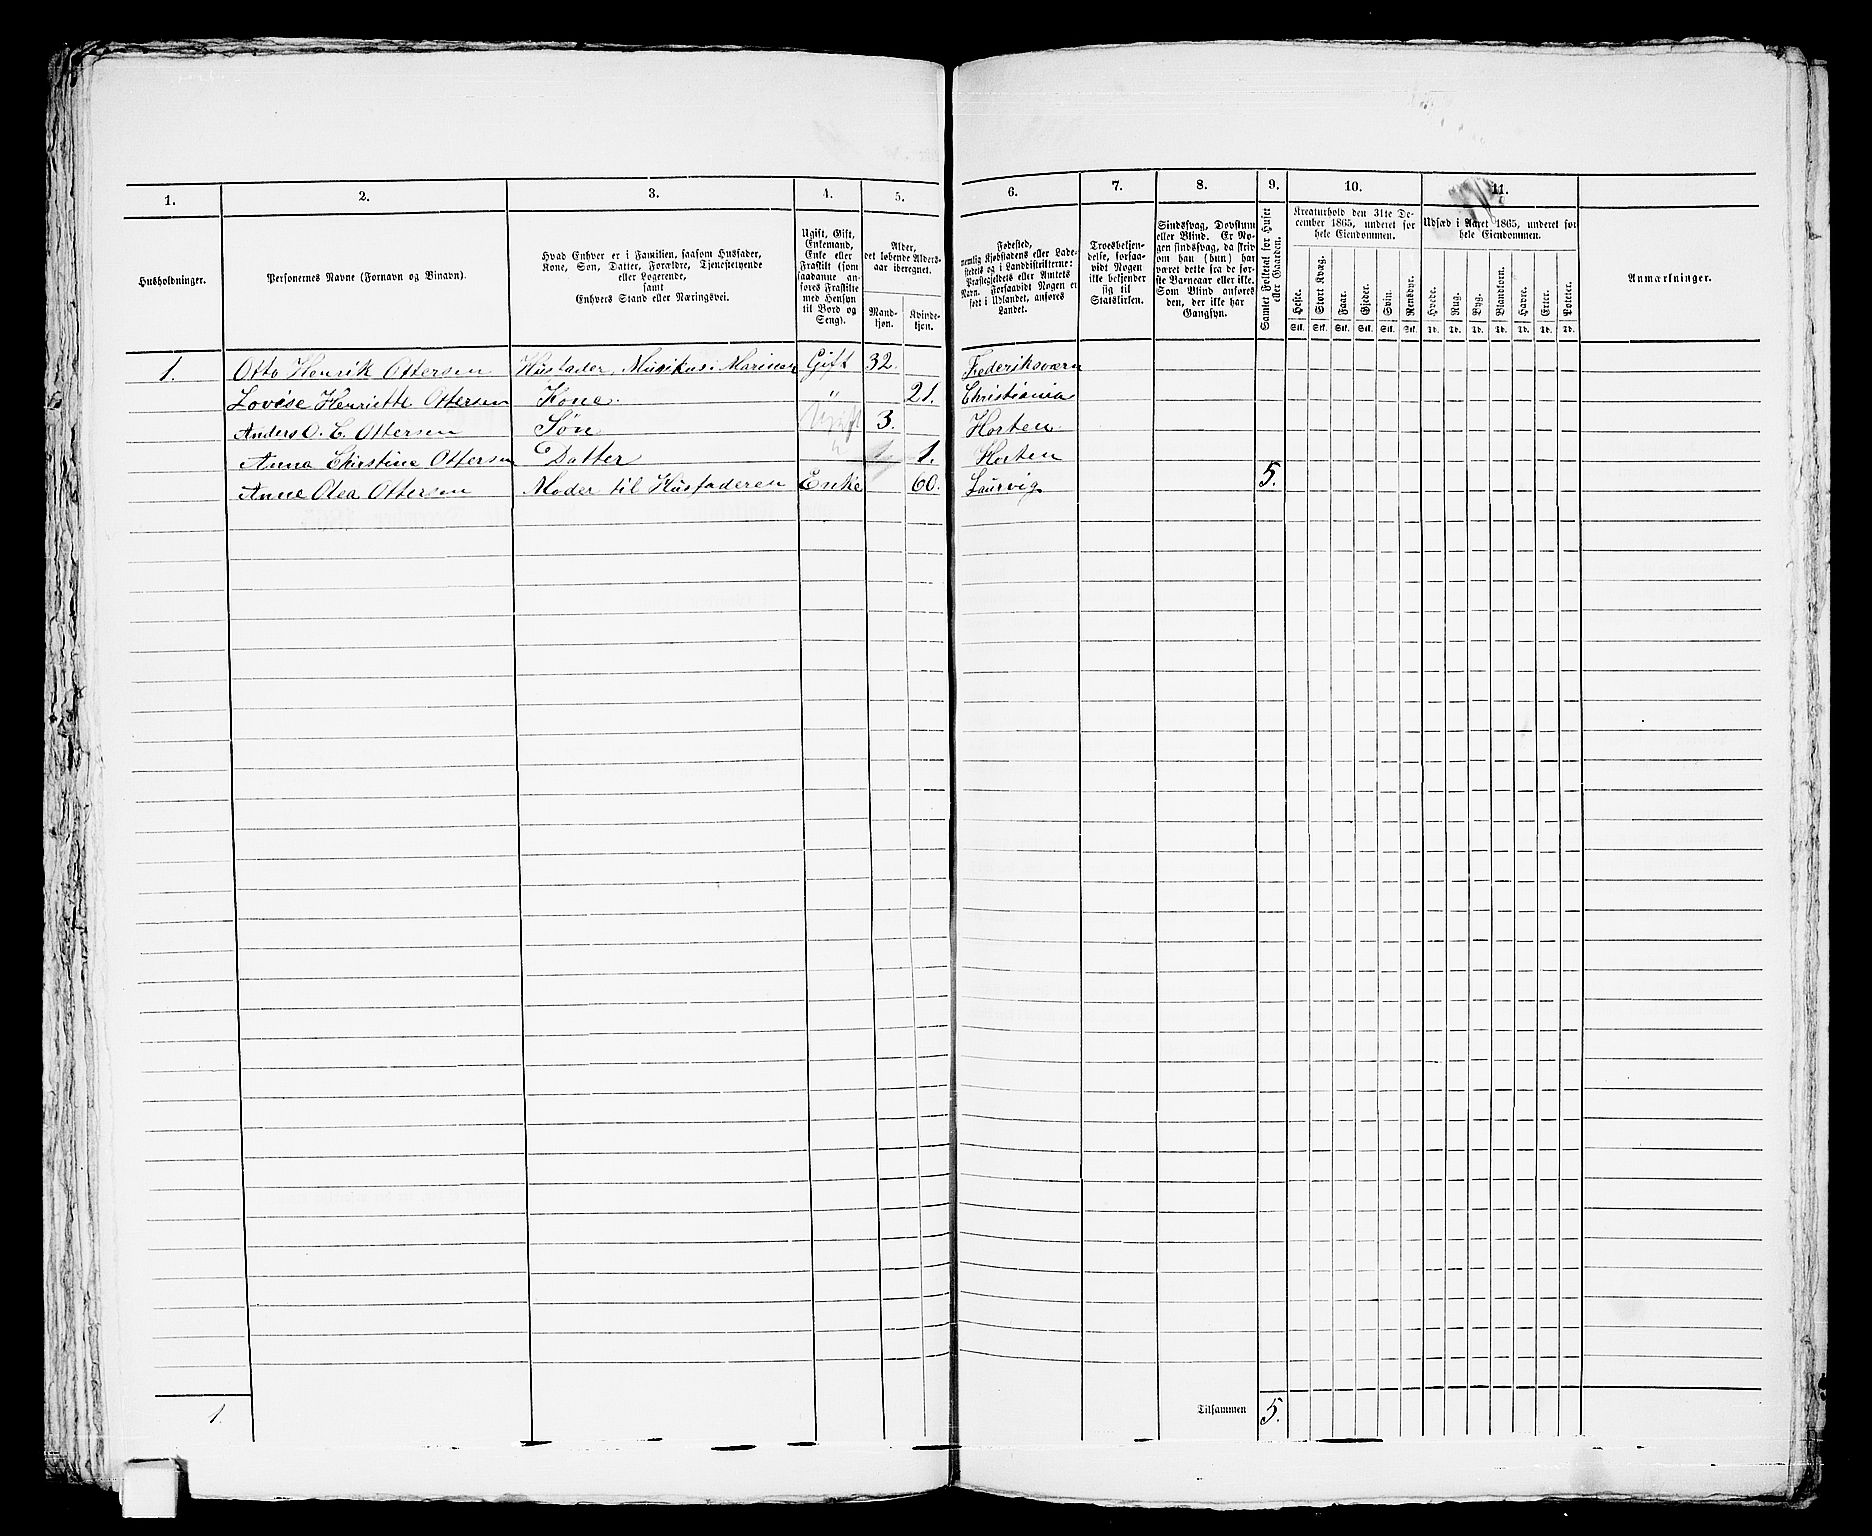 1. 2. 3. 4. 5. 6. 7. 8. 9. 10. 11.
Husholdninger.
Personernes Navne (Fornavn og Binavn).
Hvad Enhver er i Familien, saasom Husfader,
Kone, Søn, Datter, Forældre, Tjenestetyende
eller Logerende,
samt
Enhvers Stand eller Næringsvei.
Ugift, Gift,
Enkemand,
Enke eller
Fraskilt (som
saadanne an-
føres Fraskilte
med Hensyn
til Bord og
Seng).
Alder,
det løbende Alders-
aar iberegnet.
Mand-
kjøn.
Kvinde-
kjøn.
Fødested,
nemlig Kjøbstadens eller Lade-
stedets og i Landdistrikterne:
Præstegjeldets eller Amtets
Navn. Forsaavidt Nogen er
født i Udlandet, anføres
Landet.
Troesbekjen-
delse, forsaa-
vidt Nogen
ikke bekjender
sig til
Statskirken.
Sindssvag, Døvstum
eller Blind. Er No-
gen sindssvag, da skriv
om han (hun) har
været dette fra de før-
ste Barneaar eller ikke.
Som Blind anføres
den, der ikke har
Gangsyn.
Samlet Folketal for Huset
eller Gaarden.
Kreaturhold den 31te De-
cember 1865, underet for
hele Eiendommen.
Heste. Stort Kvæg. Faar. Gjeder. Svin. Rensdyr.
Stk. Stk. Stk. Stk. Stk. Stk.
Udsæd i Aaret 1865, underet for
hele Eiendommen.
Hvede. Rug. Byg. Blandkorn. Havre. Erter. Poteter.
Td. Td. Td. Td. Td. Td. Td.
Anmærkninger.
1. Otto Henrik Ottersen Husfader, Musikus i Marinen Gift 32. Frederiksværn
Lovise Henriette Ottersen Kone. " 21. Christiania
Anders O. E. Ottersen Søn Ugift 3. Horten
Anna Christine Ottersen Datter 1. Horten
Anne Olea Ottersen Moder til Husfaderen Enke 60. Laurvig 5.
1. Tilsammen 5.